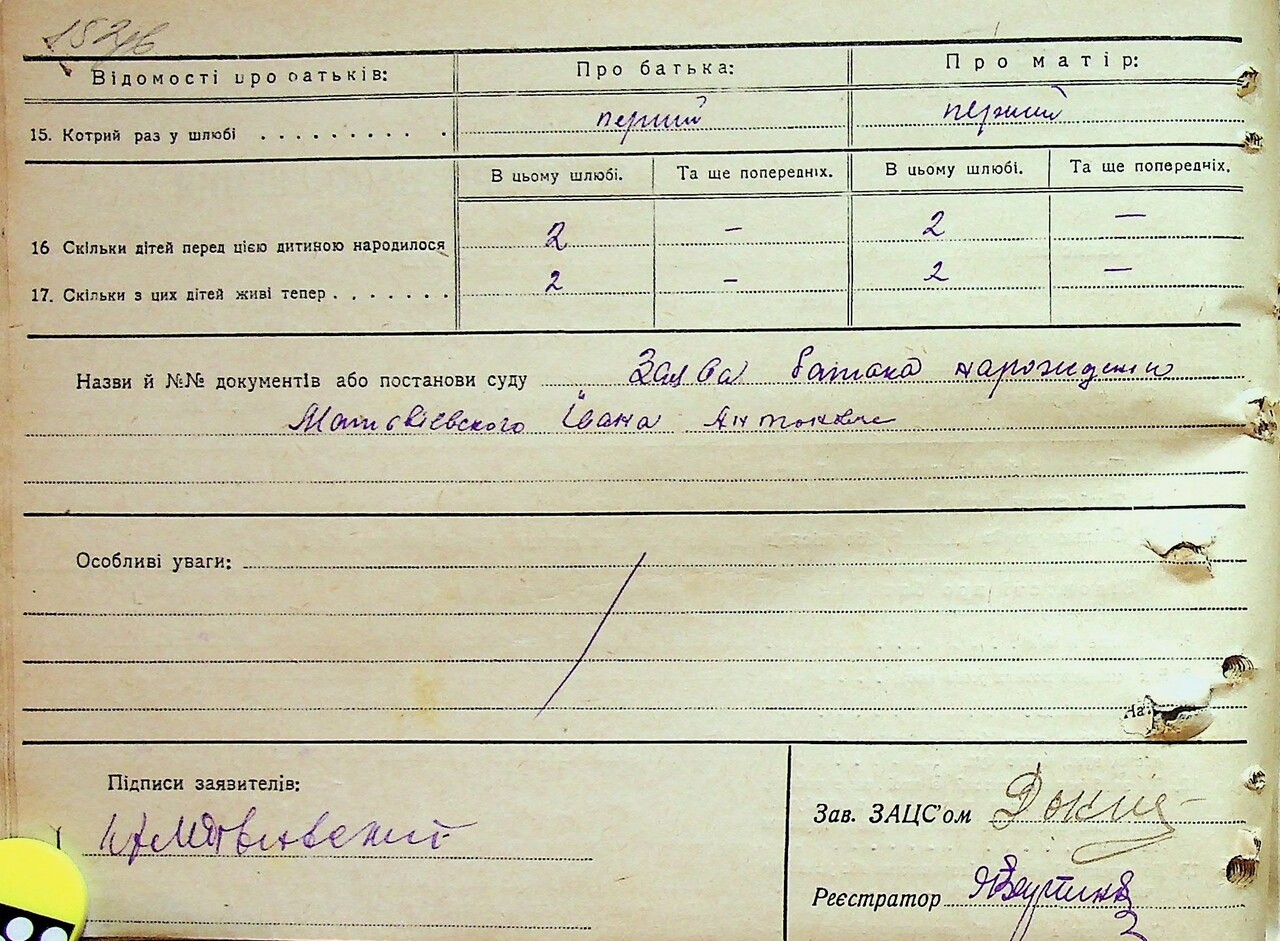 Відомості про батьків: Про батька: Про матір:
15. Котрий раз у шлюбі . . . . . . . . . . перший перший
В цьому шлюбі. Та ще попередніх. В цьому шлюбі. Та ще попередніх.
16 Скільки дітей перед цією дитиною народилося 2 – 2 —
17. Скільки з цих дітей живі тепер . . . . . . . 2 – 2 —
Назви й №№ документів або постанови суду Заява батька
Матвієвского Івана Антонович
Особливі уваги:
На
Підписи заявителів:
Зав. ЗАЦС'ом
Реєстратор